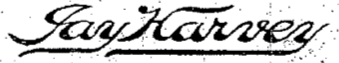 Jay Harvey